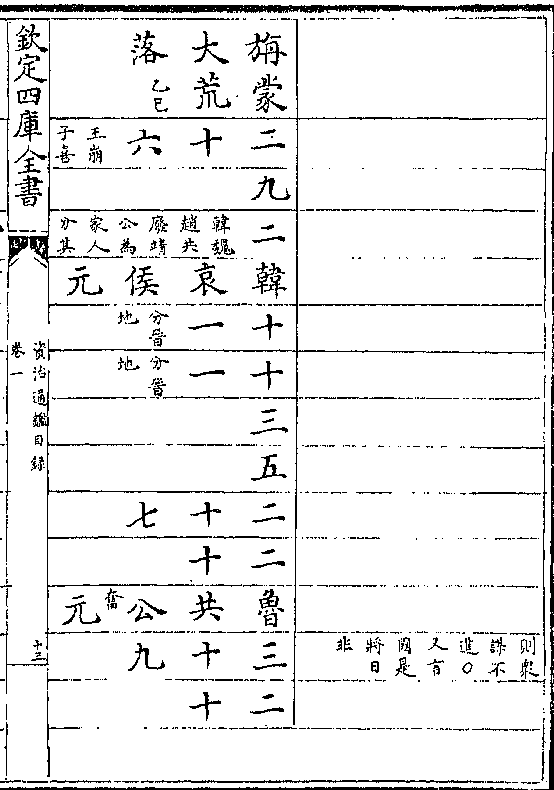 則衆謀不進〇又言國是將日非
旃蒙大荒落乙巳
二十六王崩子喜
九
二韓魏趙共廢靖公為家人分其
韓哀侯元
十一分晉地
十一分晉地
三
五
二十七
二十
魯共公奮元
三十九
二十
欽定四庫全書
資治通鑑目録
卷一
十三